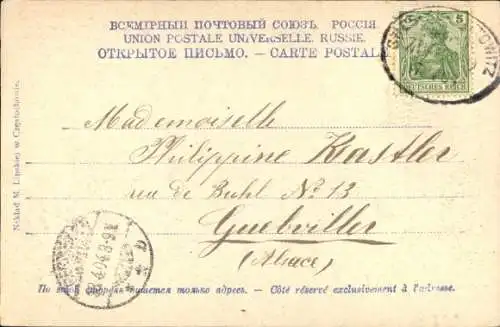 ВСЕМІРНЫЙ ПОЧТОВЫЙ СОЮЗЪ. РОССІЯ.
UNION POSTALE UNIVERSELLE. RUSSIE.
ОТКРЫТОЕ ПИСЬМО. — CARTE POSTALE
5
DEUTSCHES REICH
Mademoiselle
Philippine Kastler
rue de Buhl No 13
Guebviller
(Alsace)
Nakład M. Lipskiej w Częstochowie.
На этой сторонѣ пишется только адресъ. — Côté réservé exclusivement à l'adresse.